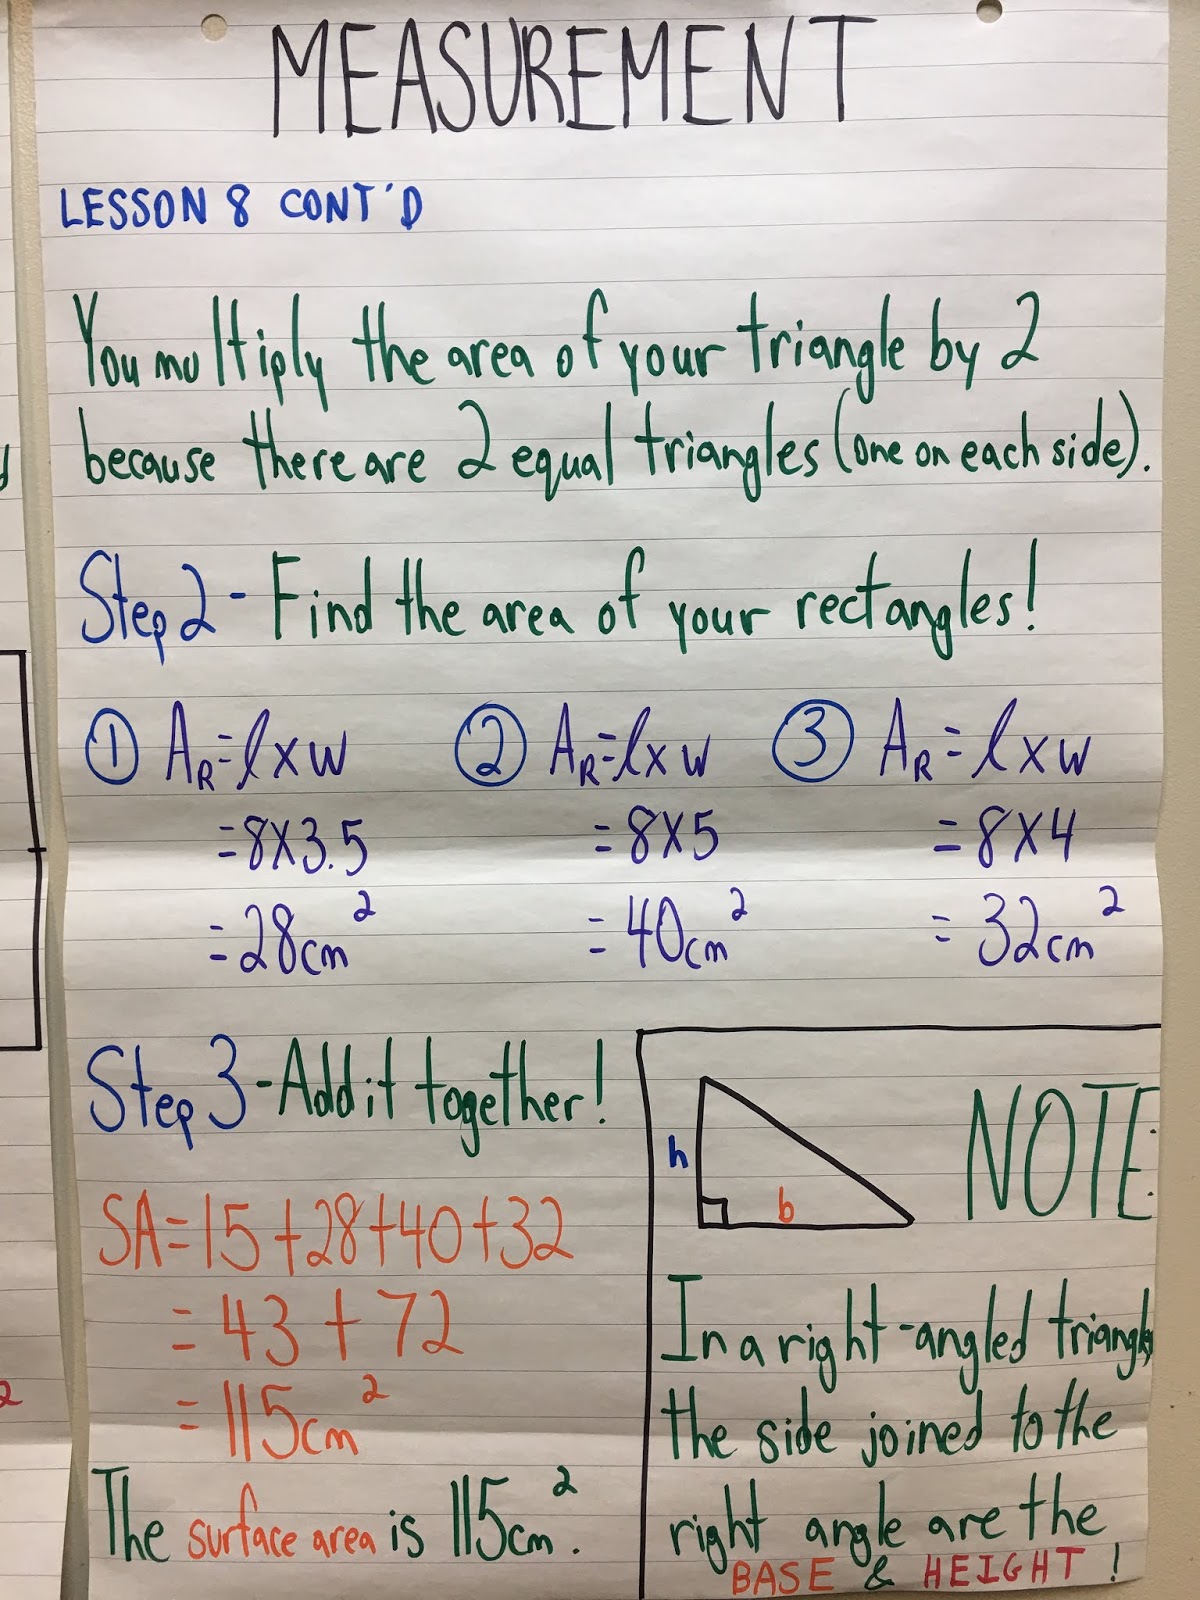 MEASUREMENT
LESSON 8 CONT'D
You multiply the area of your triangle by 2
because there are 2 equal triangles (one on each side).
Step 2 - Find the area of your rectangles!
① A_R = l x w
= 8 x 3.5
= 28cm²
② A_R = l x w
= 8 x 5
= 40cm²
③ A_R = l x w
= 8 x 4
= 32cm²
Step 3 - Add it together!
SA = 15 + 28 + 40 + 32
= 43 + 72
= 115cm²
The surface area is 115cm².
h
b
NOTE:
In a right-angled triangle,
the side joined to the
right angle are the
BASE & HEIGHT!
2